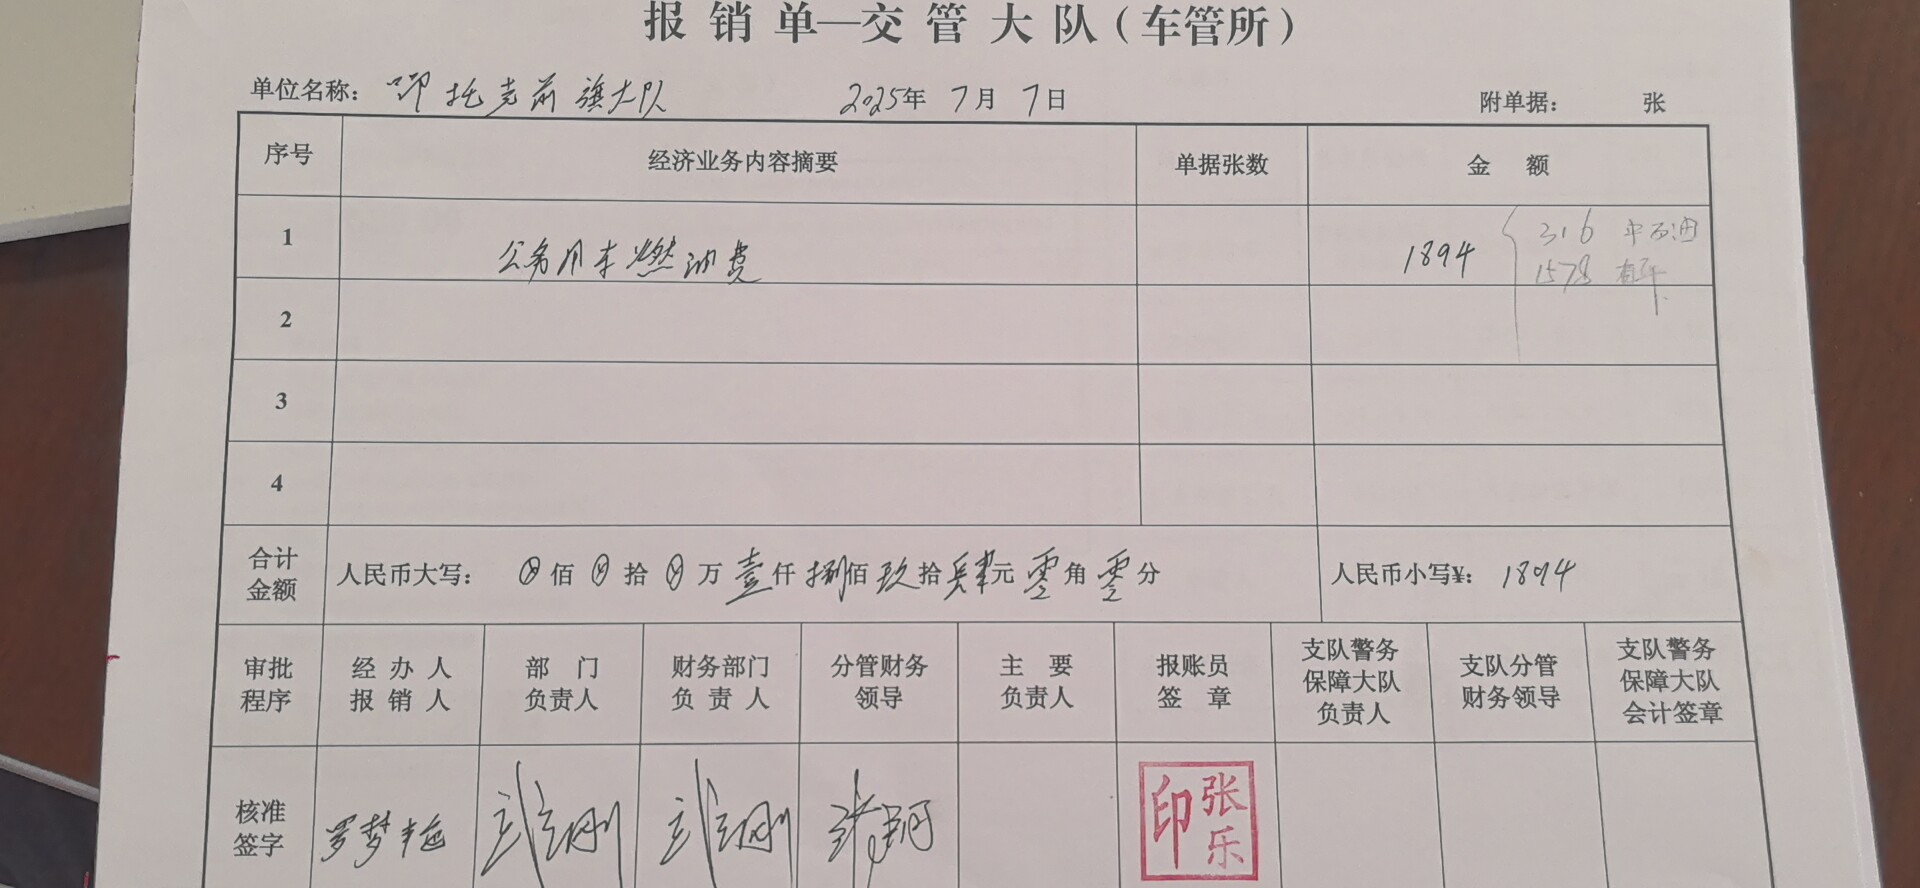 报销单—交管大队（车管所）
单位名称： 鄂托克前旗大队 2025年 7月 7日 附单据： 张
序号 经济业务内容摘要 单据张数 金 额
1 公务用车燃油费 1894 316 中石油
1578
2
3
4
合计金额 人民币大写： 佰 拾 万 壹仟 捌佰 玖拾 肆元 零角 零分 人民币小写¥： 1894
审批程序 经办人报销人 部门负责人 财务部门负责人 分管财务领导 主要负责人 报账员签章 支队警务保障大队负责人 支队分管财务领导 支队警务保障大队会计签章
核准签字 罗梦艳 张乐印